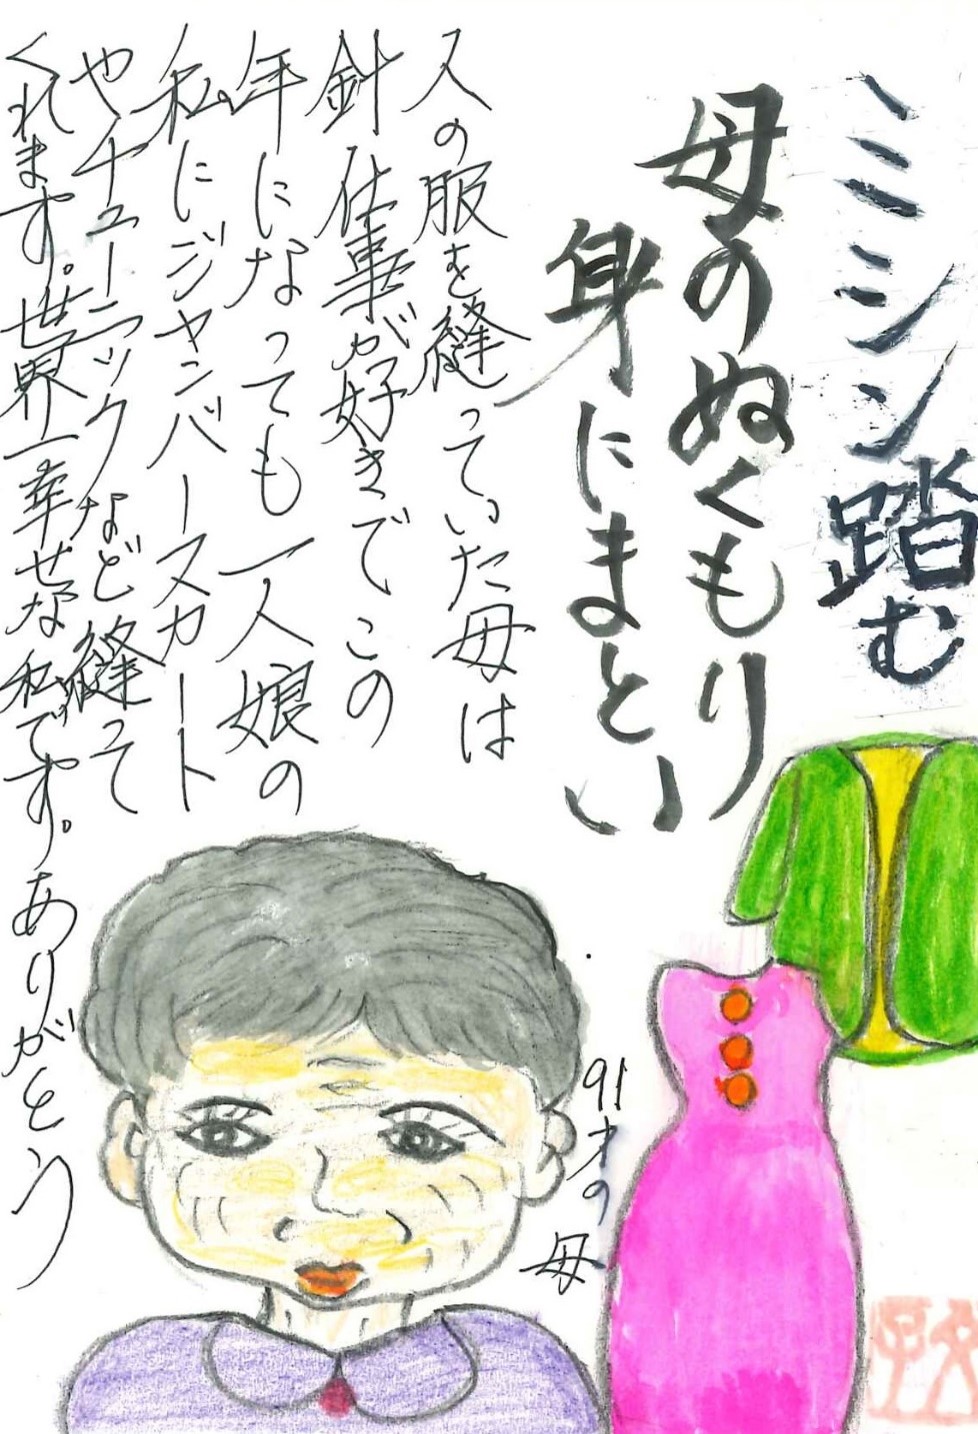 ミシン踏む
母のぬくもり
身にまとい
人の服を縫っていた母は
針仕事が好きでこの
年になっても一人娘の
私にジャンバースカート
やチューニックなど縫って
くれます。世界一幸せな私です。ありがとう
91才の母